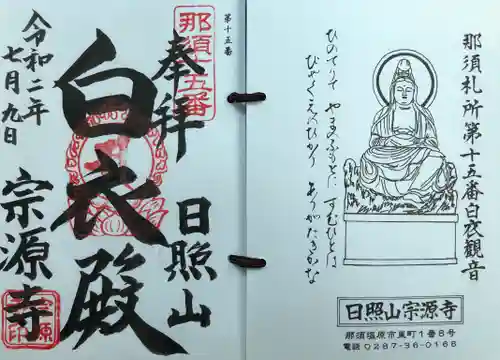 第十五番
那須十五番
奉拝
日照山
白衣殿
令和二年
七月九日
宗源寺
那須札所第十五番白衣観音
ひのてりて やまのふもとに すむひとは
びやくえのひかり ありがたきかな
日照山宗源寺
那須塩原市黒町1番8号
電話 0287-36-0168